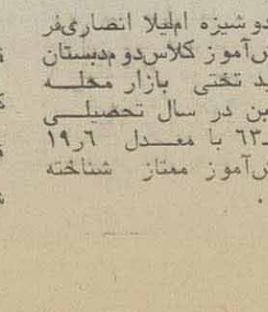 دوشیزه املیلا انصاری‌فر
ش‌آموز کلاس‌دو مدبستان
ید تختی بازار محلـه
ین در سال تحصیلـی
ـ٦٣ با معـدل ١٩ر٦
ش‌آموز ممتاز شناخته
.